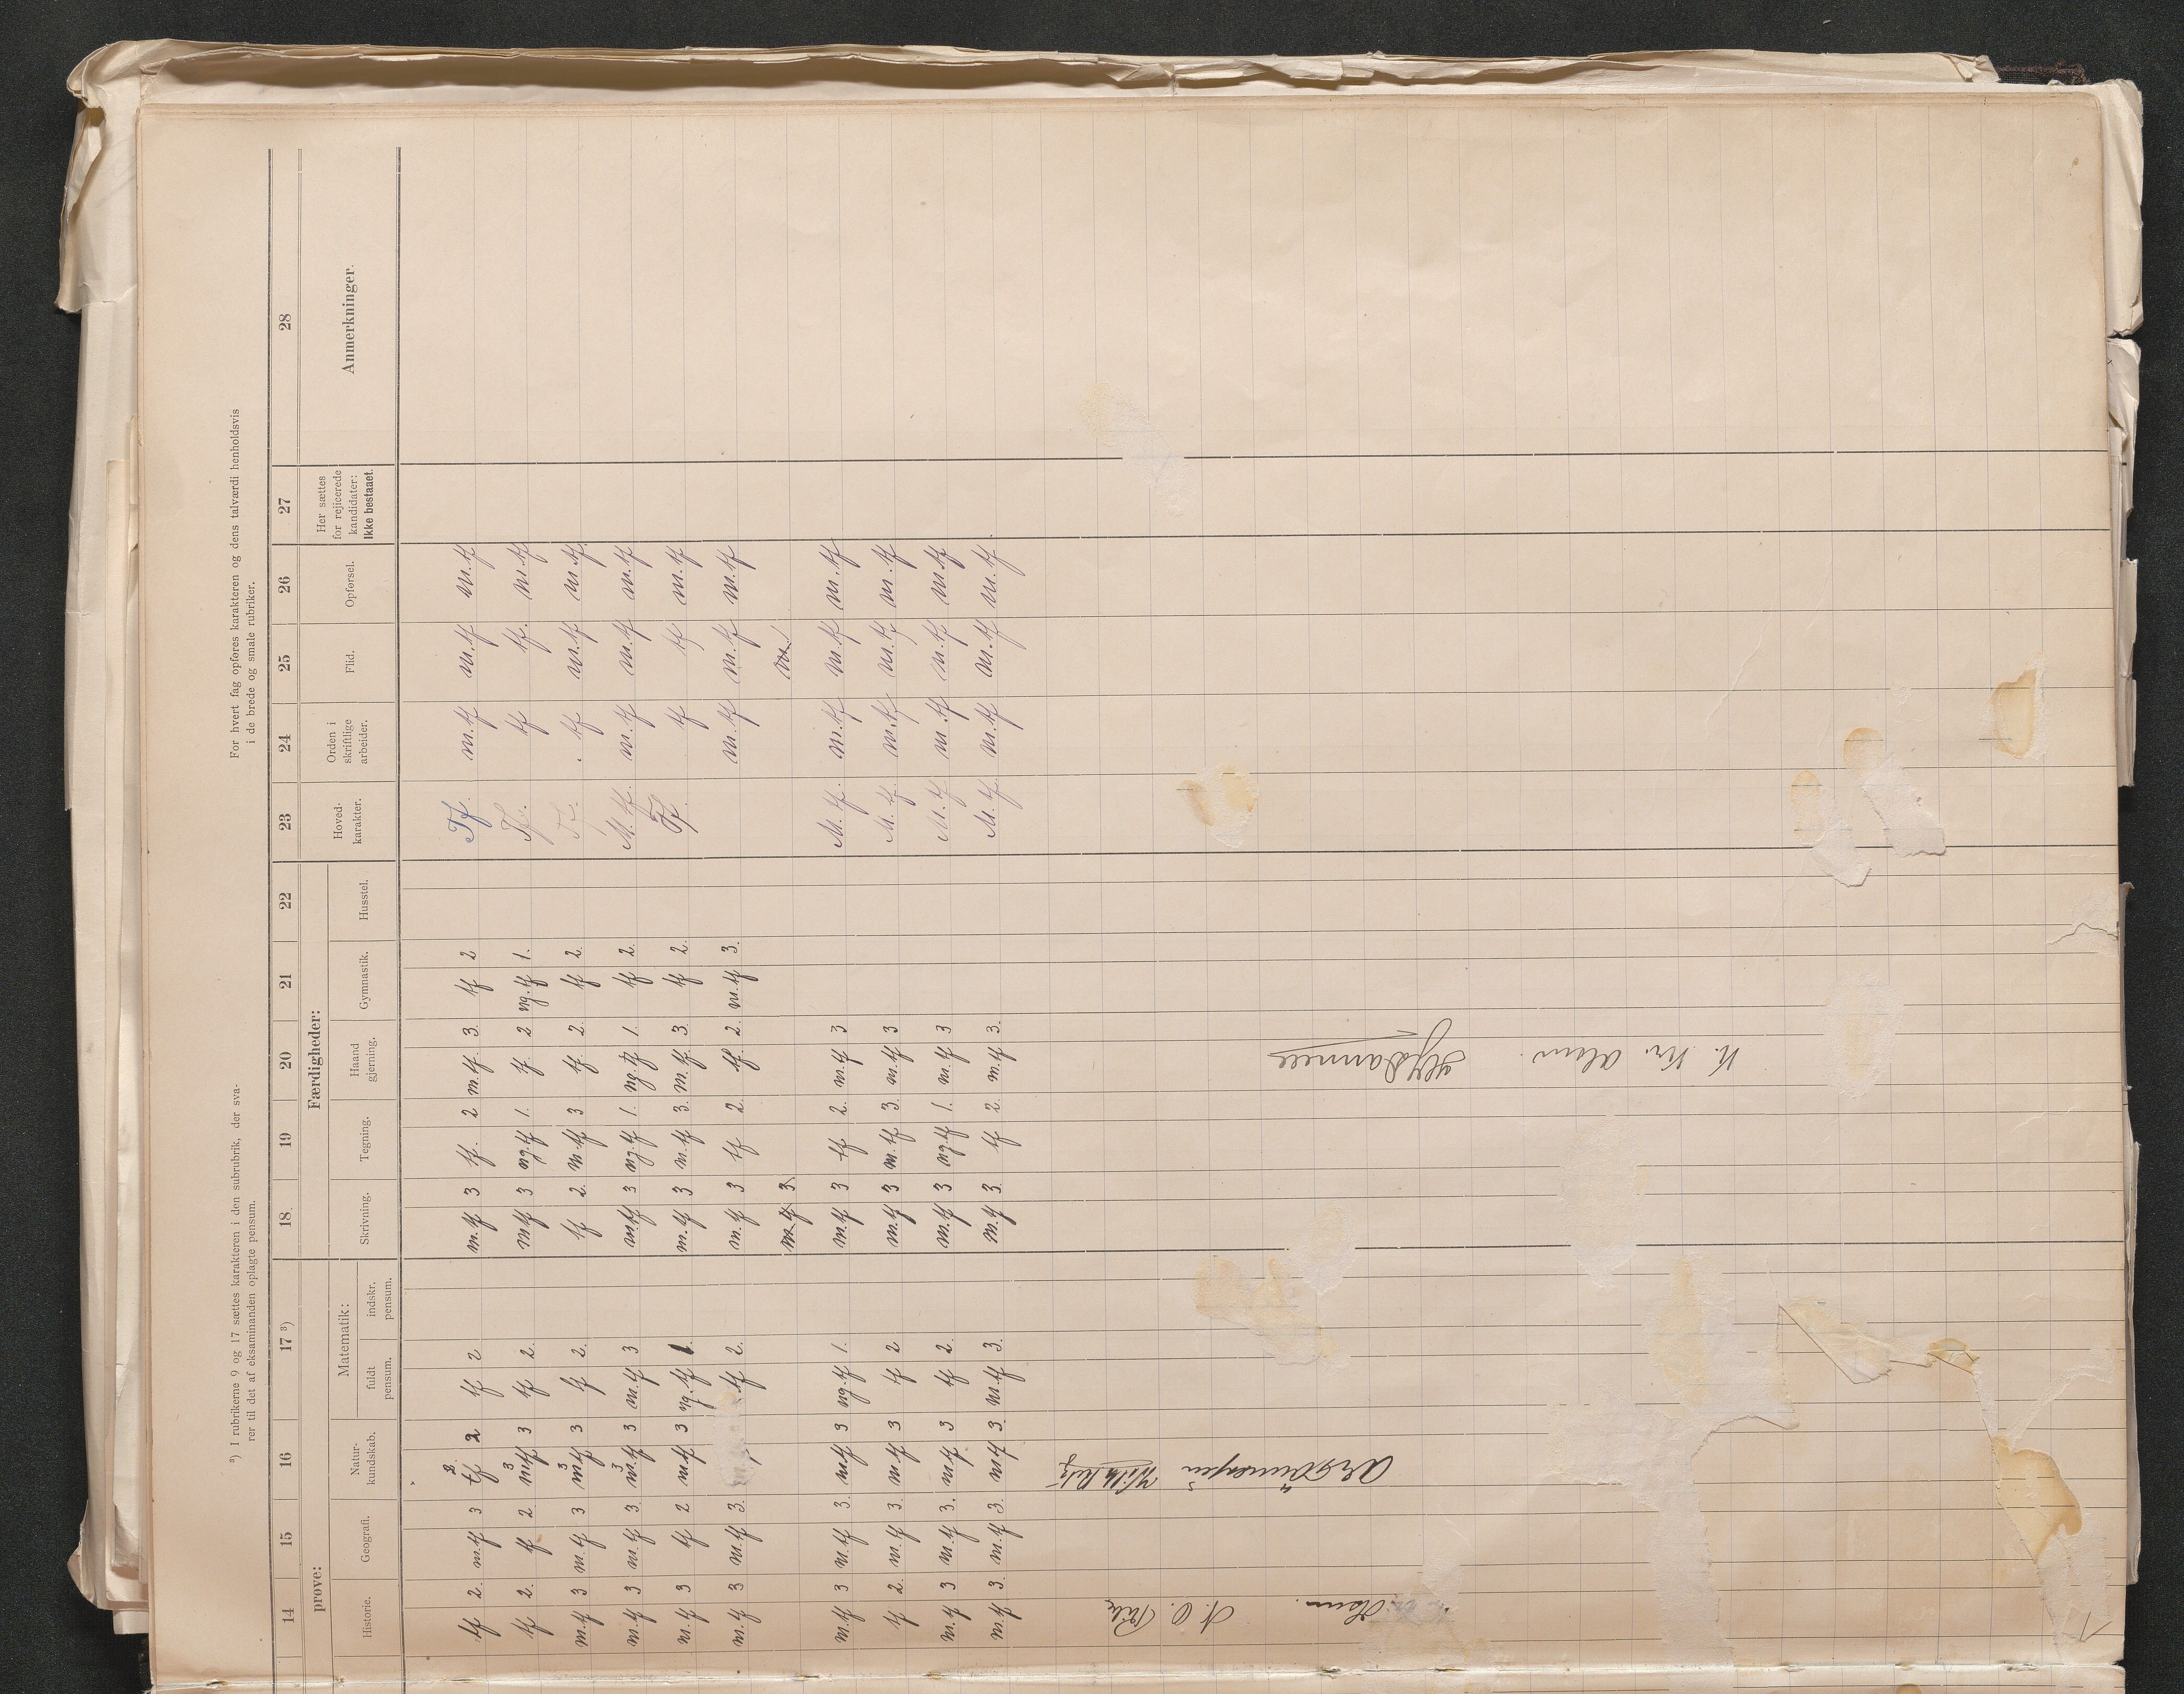 ³) I rubrikerne 9 og 17 sættes karakteren i den subrubrik, der sva-
rer til det af eksaminanden oplagte pensum.
For hvert fag opføres karakteren og dens talværdi henholdsvis
i de brede og smale rubriker.
14 15 16 17 ³) 18 19 20 21 22 23 24 25 26 27 28
prøve: Færdigheder:
Historie. Geografi. Natur-kundskab. Matematik: fuldt pensum. indskr. pensum. Skrivning. Tegning. Haand gjerning. Gymnastik. Husstel. Hoved-karakter. Orden i skriftlige arbeider. Flid. Opførsel. Her sættes for rejicerede kandidater: Ikke bestaaet. Anmerkninger.
tf 2. m.tf 3 tf 2 tf 2 m.tf 3 tf. 2 m.tf. 3. tf 2 Tf. m.tf m.tf m.tf
tf 2. tf 2. m.tf 3 tf 2. m.tf 3 ng.tf 1. tf. 2 ng.tf 1. Tf. tf tf. m.tf
m.tf 3 m.tf 3 m.tf 3 tf 2. tf 2. m.tf 3 tf. 2. tf 2. Tf. tf m.tf m.tf
m.tf 3 m.tf 3. m.tf 3 m.tf 3 m.tf 3 ng.tf 1. ng.tf 1. tf 2. M.tf. m.tf m.tf m.tf
m.tf 3 tf 2 m.tf 3 ng.tf 1. m.tf 3 m.tf 3. m.tf. 3. tf 2. Tf. tf tf m.tf
m.tf 3 m.tf 3. tf 2. m.tf 3 tf 2. tf. 2. m.tf 3. m.tf m.tf m.tf
m.tf 3 m.
m.tf 3 m.tf 3. m.tf 3 ng.tf 1. m.tf 3 tf 2. m.tf 3 M.tf. m.tf m.tf m.tf
tf 2. m.tf 3. m.tf 3 tf 2 m.tf 3 m.tf 3. m.tf 3 M.tf. m.tf m.tf m.tf
m.tf 3 m.tf 3. m.tf 3 tf 2. m.tf 3 ng.tf 1. m.tf 3 M.tf m.tf m.tf m.tf
m.tf 3. m.tf 3. m.tf 3. m.tf 3. m.tf 3. tf 2. m.tf 3. M.tf. m.tf m.tf m.tf